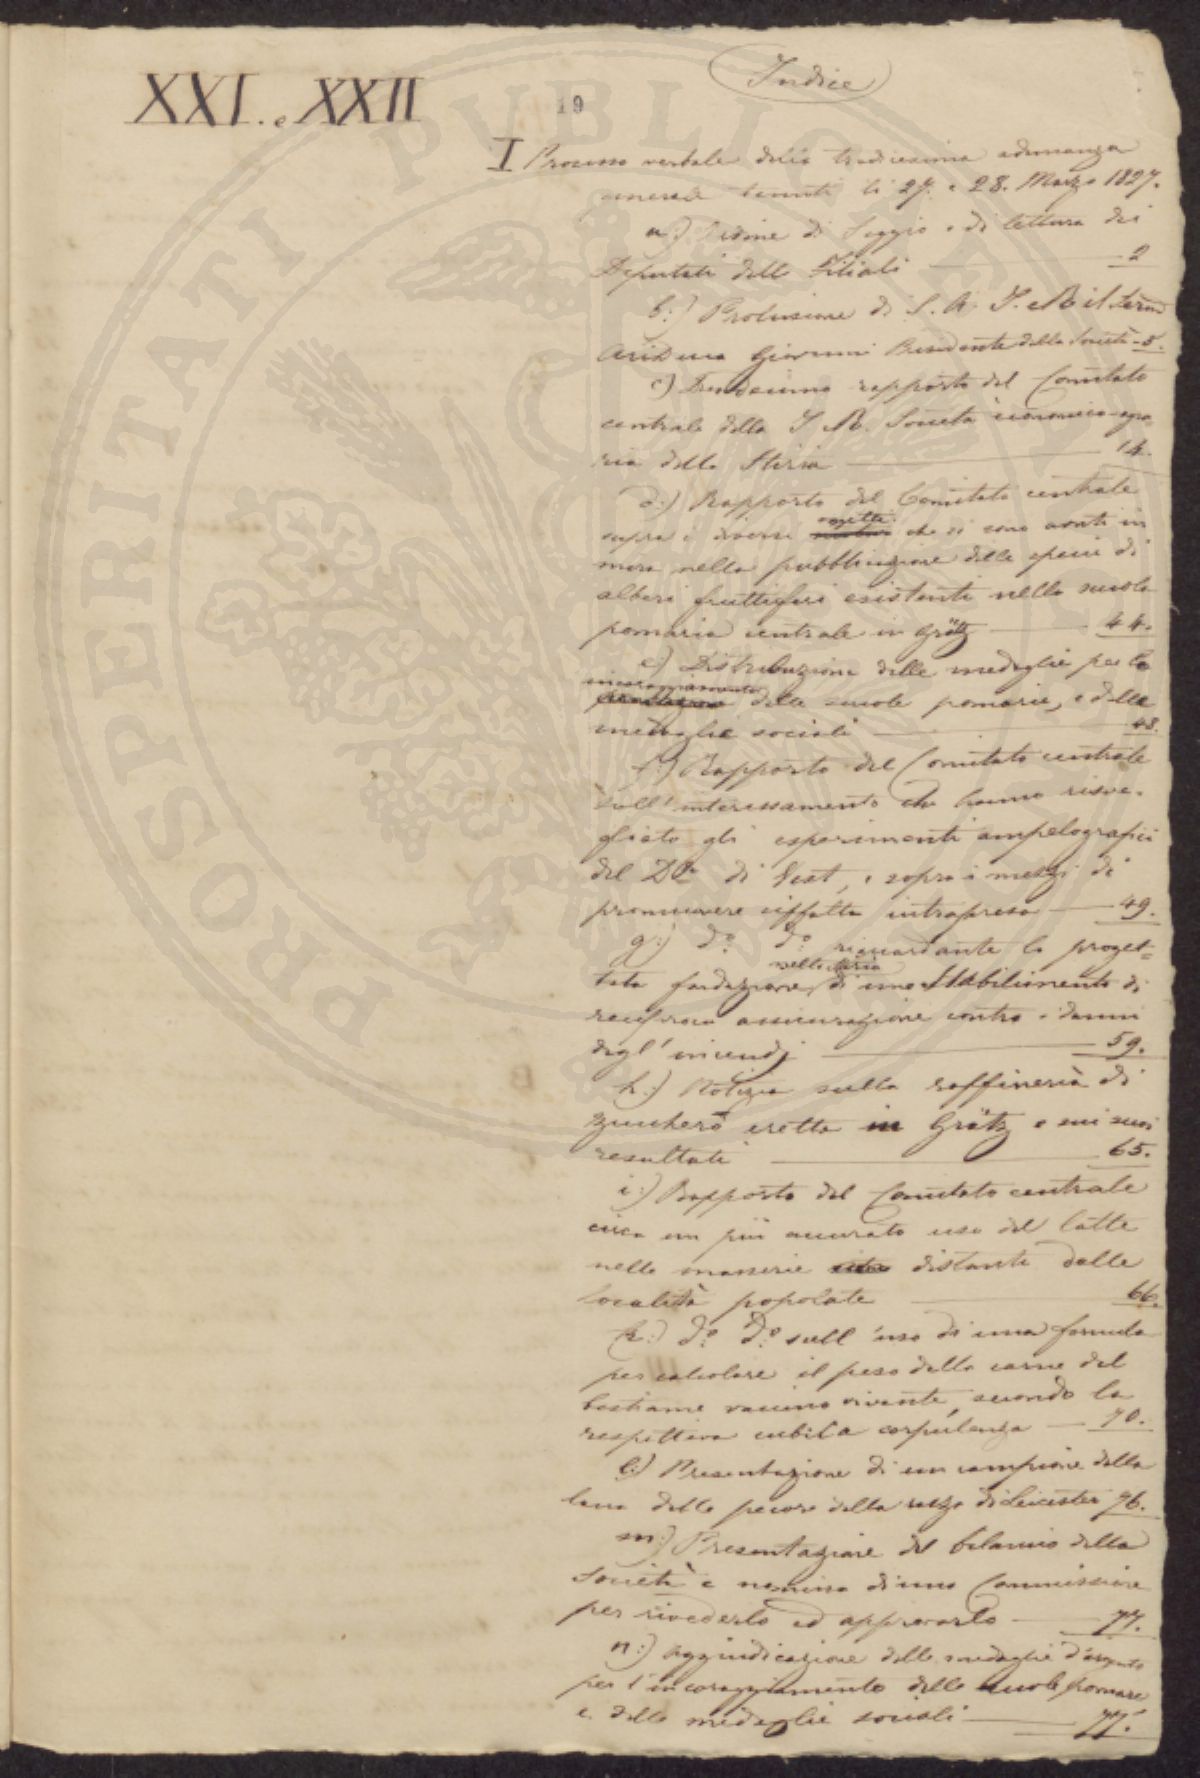 Indice
XXI. e XXII
19
I Processo verbale della tredicesima adunanza
generale tenuta li 27. e 28. Marzo 1827.
a.) Ordine di Seggio e di lettura dei
Deputati delle Filiali 2
b.) Prolusione di S. A. I. e R. il Seren
Arciduca Giovanni Presidente della Società 5.
c.) rapporto del Comitato
centrale della I. R. Società economico-agra-
ria della Stiria 14.
d.) Rapporto del Comitato centrale
sopra i diversi oggetti che si sono avuti in
mira nella pubblicazione delle specie di
alberi fruttiferi esistenti nella scuola
pomaria centrale in Grätz 44.
e.) Distribuzione delle medaglie per lo
incoraggiamento delle scuole pomarie, e delle
medaglie sociali 48.
f.) Rapporto del Comitato centrale
sull' interessamento che hanno risve-
gliato gli esperimenti ampelografici
del Dr. di Vest, e sopra i mezzi di
promuovere siffatta intrapresa 49.
g.) do. do. riguardante la proget-
tata fondazione nella Stiria di uno Stabilimento di
reciproca assicurazione contro i danni
degl' incendj 59.
h.) Notizia sulla raffineria di
zucchero eretta in Grätz e sui suoi
resultati 65.
i.) Rapporto del Comitato centrale
circa un più accurato uso del latte
nelle distanti dalle
località popolate 66.
k.) do. do. sull' uso di una formula
per calcolare il peso della carne del
bestiame vaccino vivente, secondo la
respettiva cubica corpulenza 70.
l.) Presentazione di un campione della
lana delle pecore della razza di Leicester 76.
m.) Presentazione del bilancio della
Società e nomina di una Commissione
per rivederlo ed approvarlo 77.
n.) Aggiudicazione delle medaglie d'argento
per l' incoraggiamento delle scuole pomarie
e delle medaglie sociali 77.
PROSPERITATI PUBLICAE